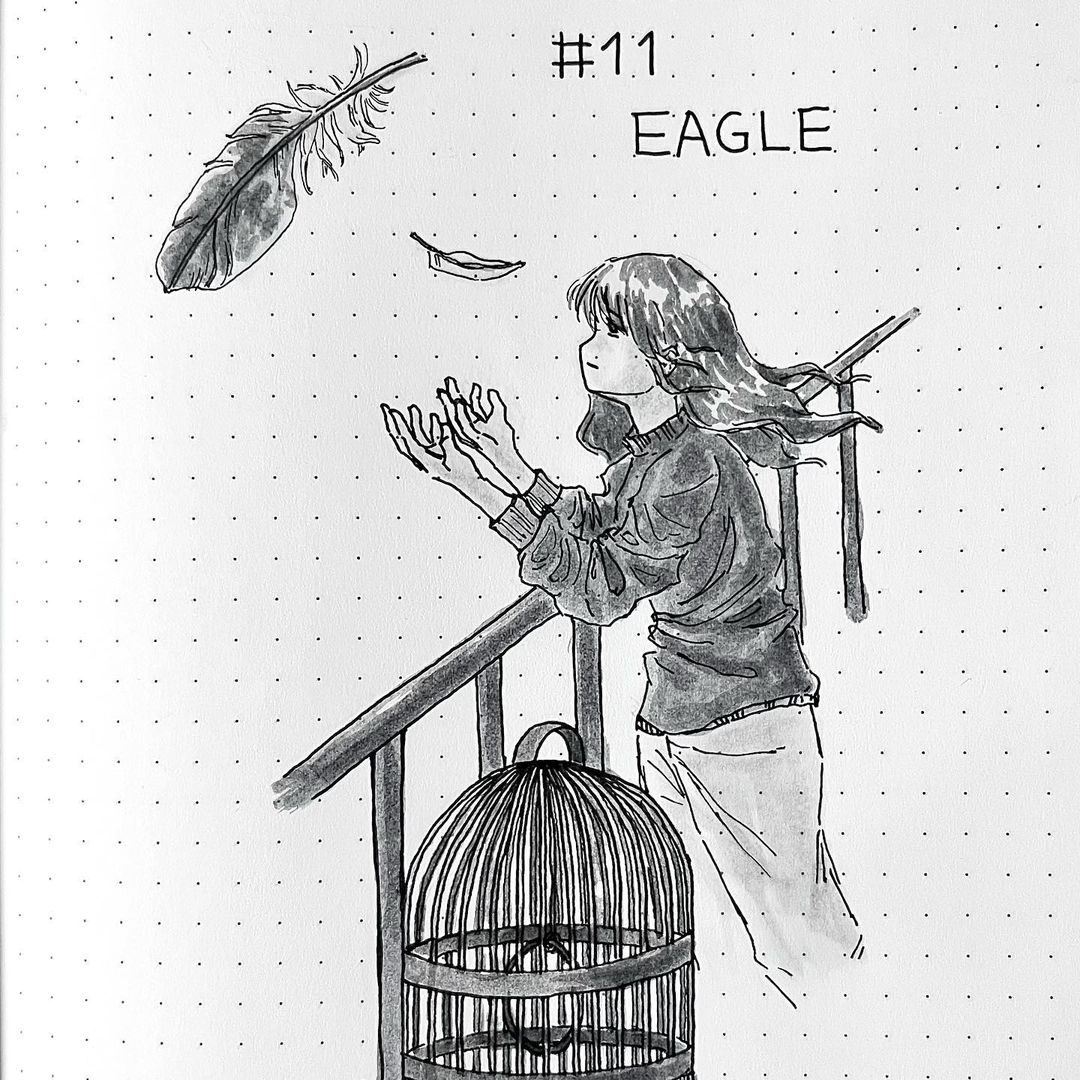 #11
EAGLE